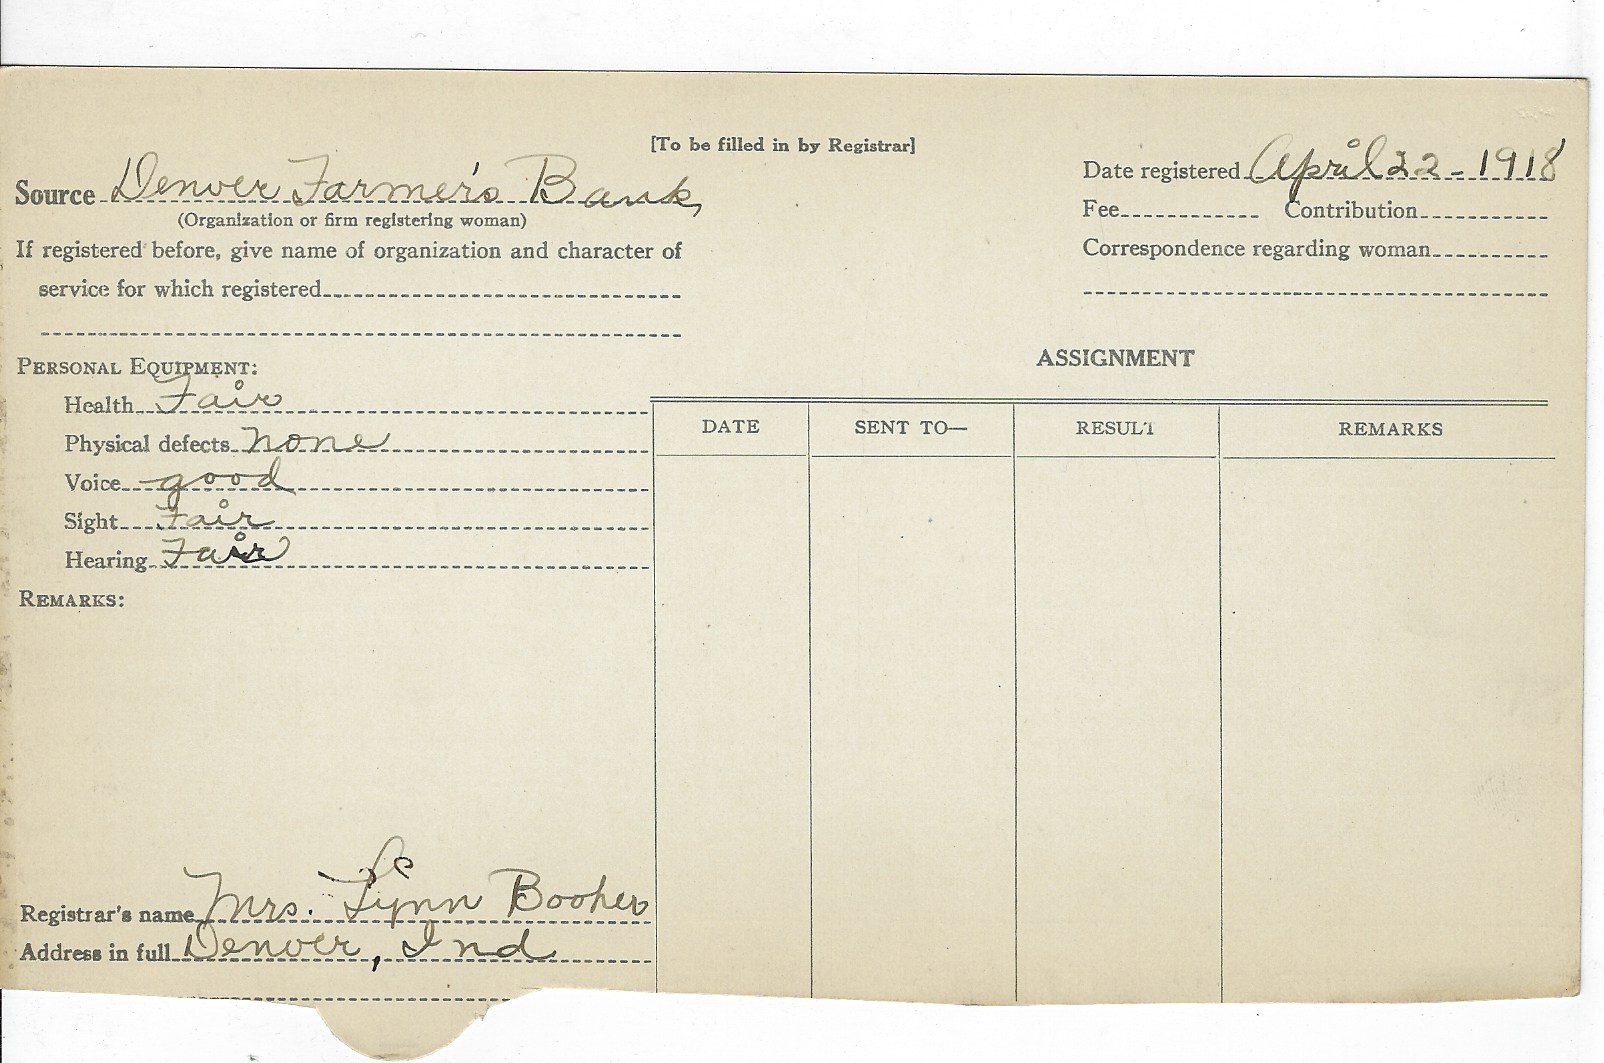 [To be filled in by Registrar]
Source Denver Farmer's Bank,
(Organization or firm registering woman)
Date registered April 22-1918
Fee Contribution
If registered before, give name of organization and character of
service for which registered
Correspondence regarding woman
PERSONAL EQUIPMENT:
Health Fair
Physical defects none
Voice good
Sight Fair
Hearing Fair
REMARKS:
ASSIGNMENT
DATE SENT TO— RESULT REMARKS
Registrar's name Mrs. Lynn Booher
Address in full Denver, Ind